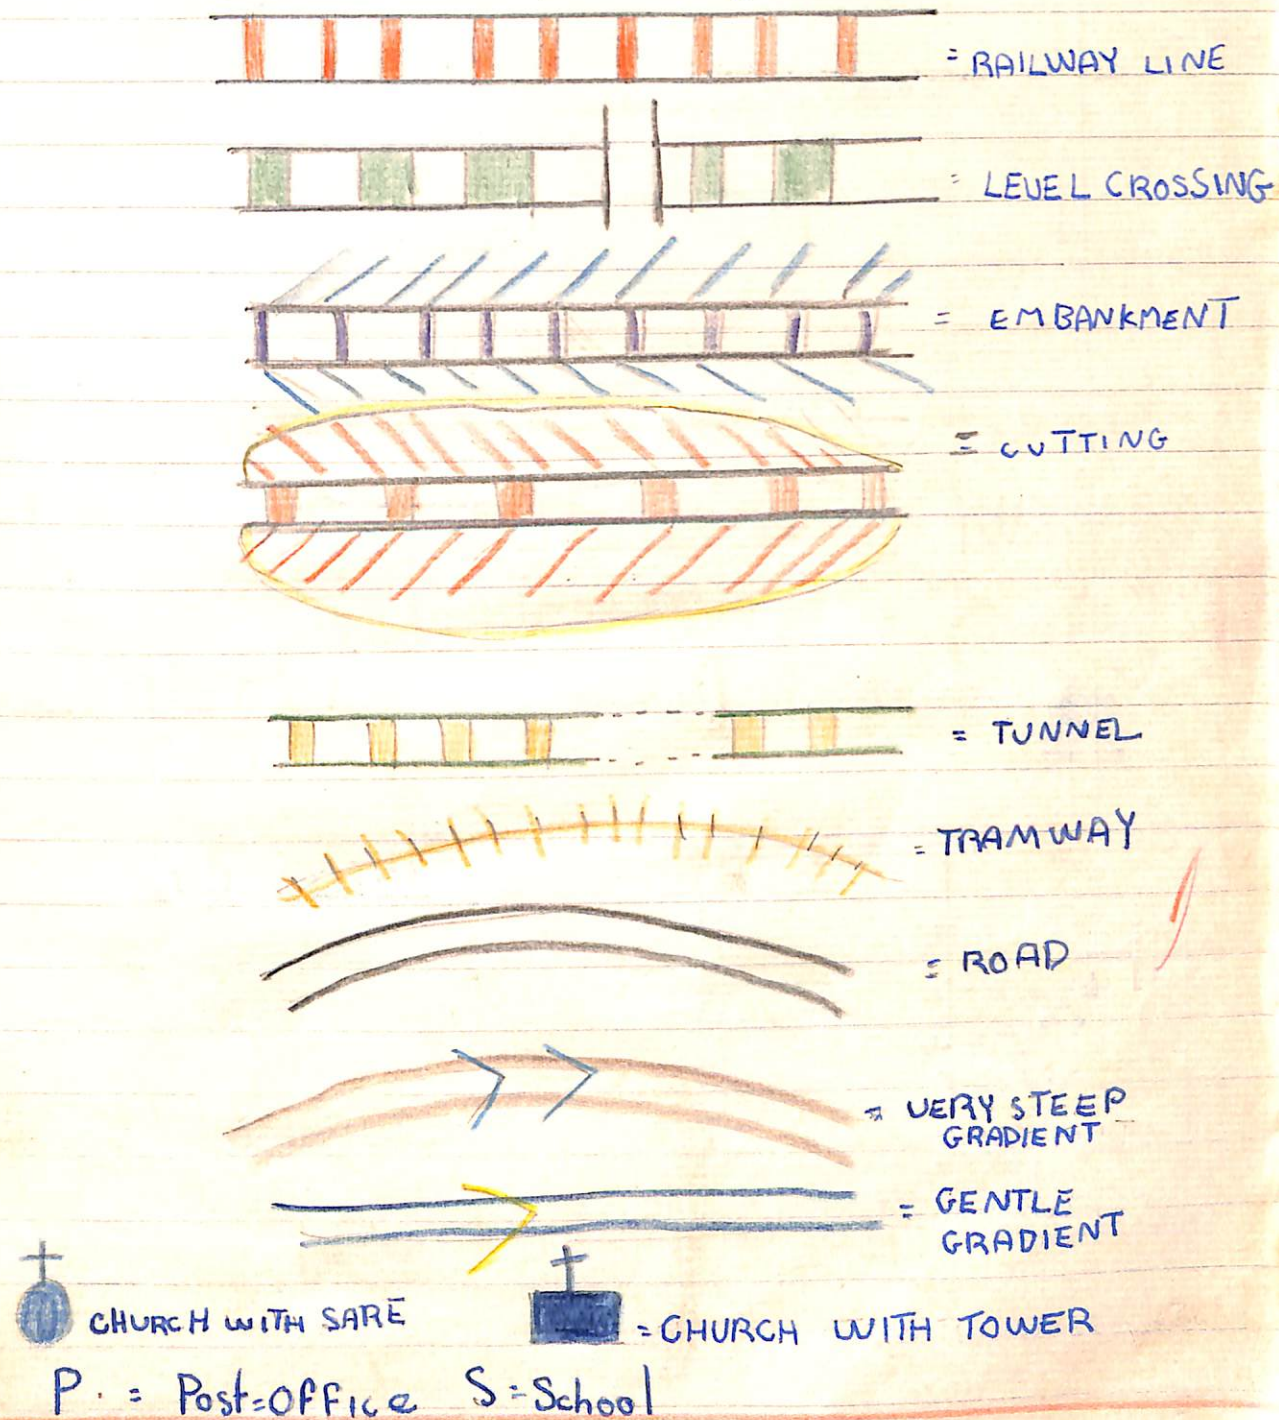 = RAILWAY LINE
= LEVEL CROSSING
= EMBANKMENT
= CUTTING
= TUNNEL
= TRAMWAY
= ROAD
= VERY STEEP
GRADIENT
= GENTLE
GRADIENT
CHURCH WITH SARE
= CHURCH WITH TOWER
P. = Post=Office S=School